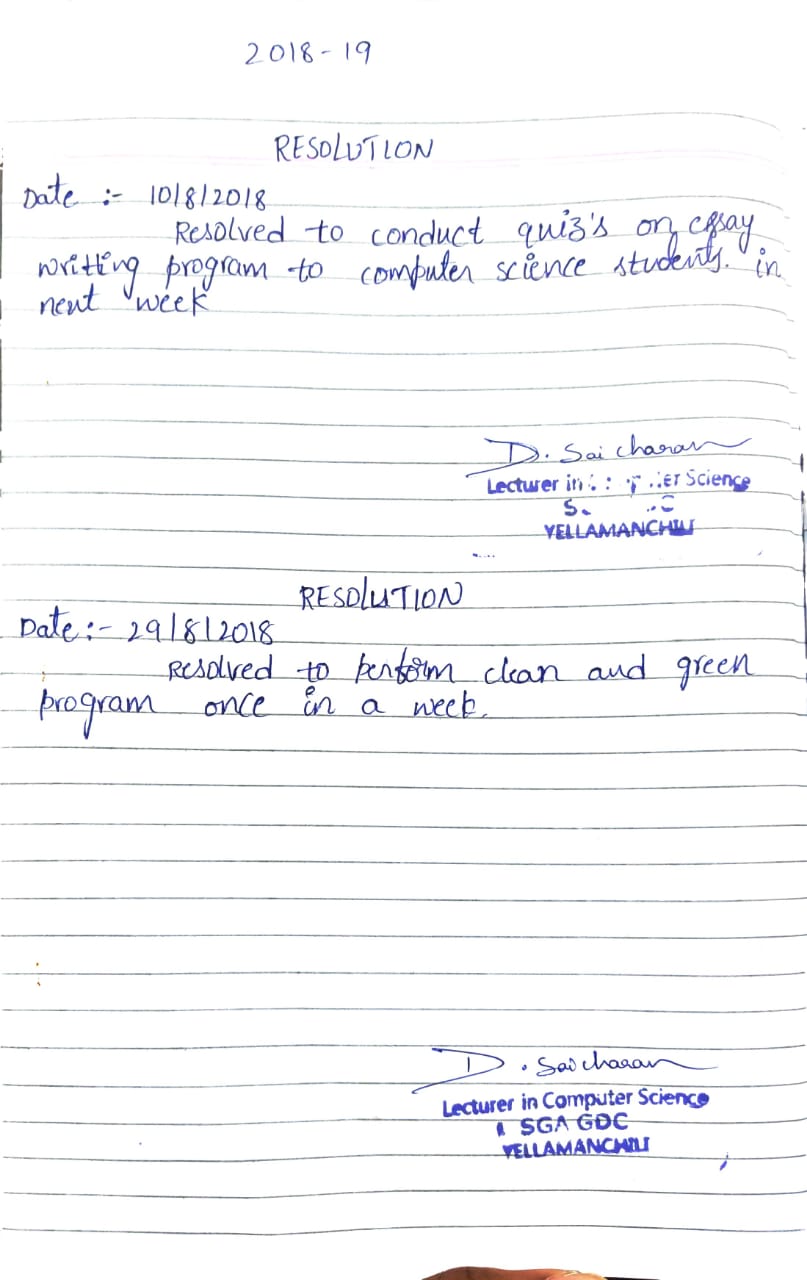 2018-19
RESOLUTION
Date :- 10/8/2018
Resolved to conduct quiz's on essay
writting program to computer science students. in
next week
D. Sai charan
Lecturer in Science
YELLAMANCHILI
RESOLUTION
Date:- 29/8/2018
Resolved to perform clean and green
program once in a week.
D. Sai charan
Lecturer in Computer Science
SGA GDC
YELLAMANCHILI